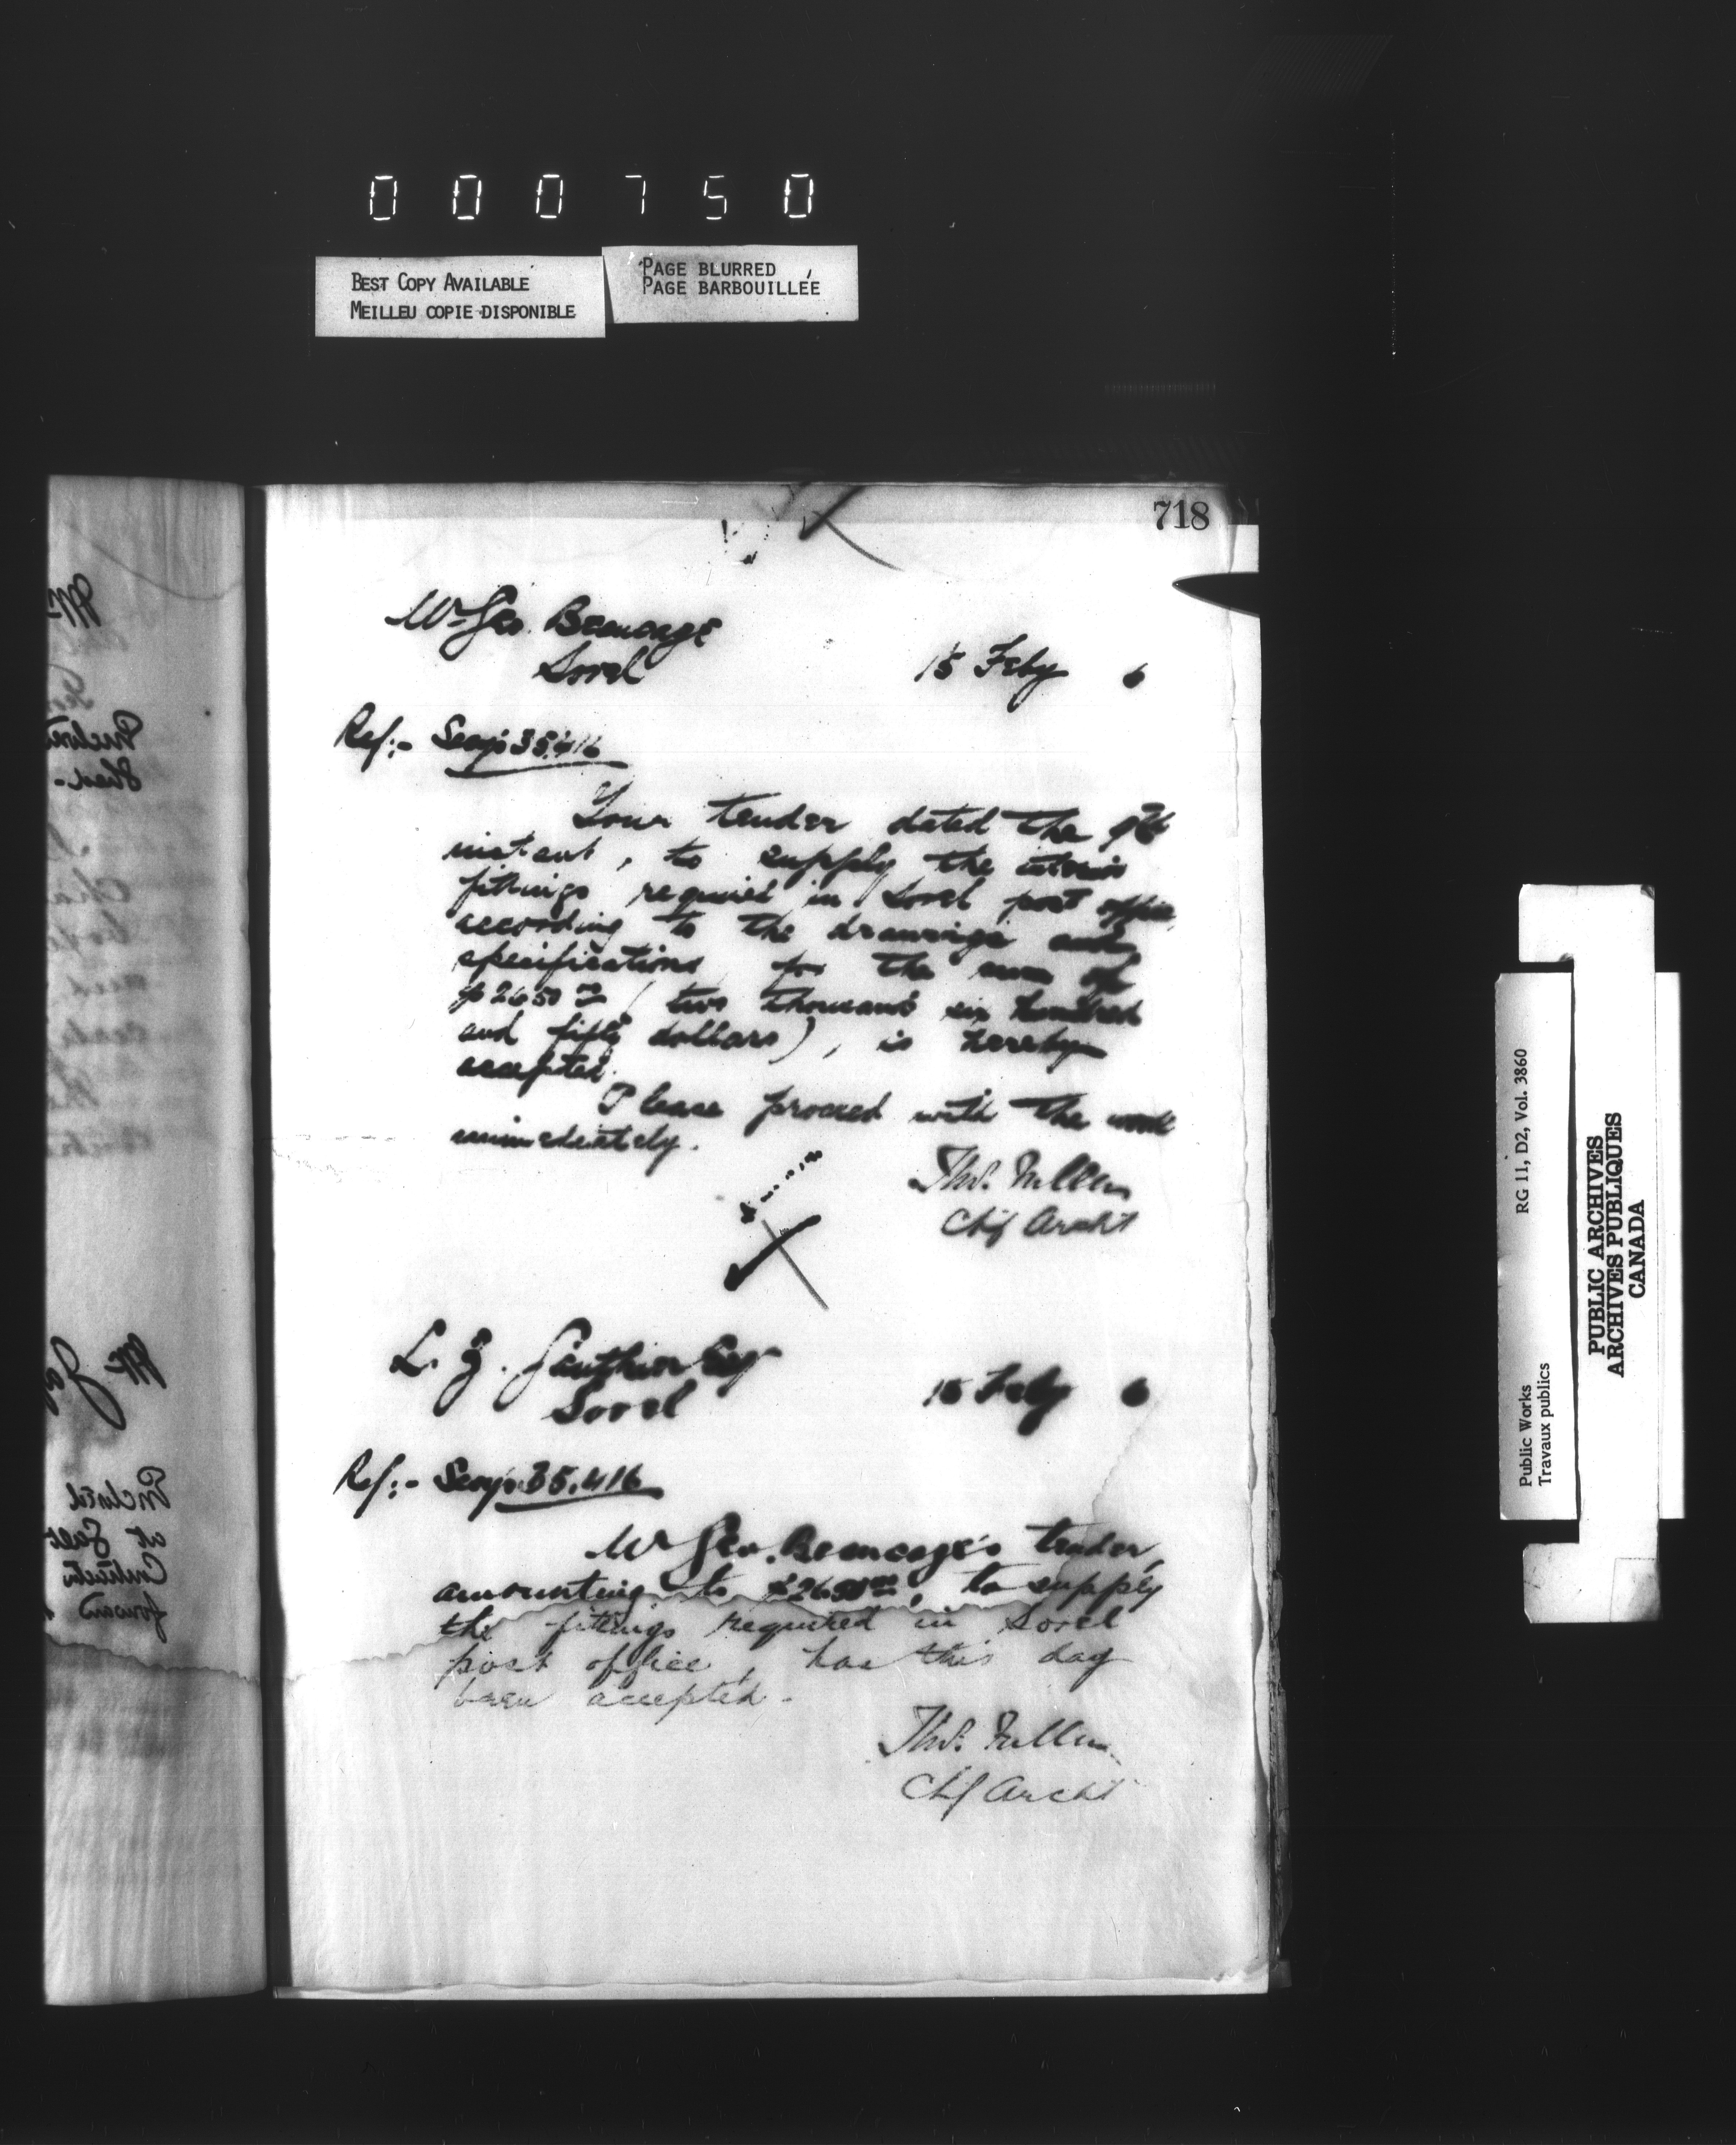 000750
BEST COPY AVAILABLE
MEILLEU COPIE DISPONIBLE
PAGE BLURRED
PAGE BARBOUILLÉE
718
Mr Geo. Beaucage
Sorel
15 Feby 6
Ref:- 35.416
Your tender dated the 9th
instant, to supply the
fittings required in Sorel post office,
according to the drawings and
specifications for the sum of
$2650 00 (two thousand six hundred
and fifty dollars), is hereby
accepted.
Please proceed with the work
immediately.
Thos. Fuller
Chf Archt
L. Z. Gauthier Esq
Sorel
15 Feby 6
Ref:- 35.416
Mr Geo. Beaucage's tender,
amounting to $2650 00, to supply
the fittings required in Sorel
post office, has this day
been accepted.
Thos. Fuller
Chf Archt
Public Works
Travaux publics
RG 11, D2, Vol. 3860
PUBLIC ARCHIVES
ARCHIVES PUBLIQUES
CANADA